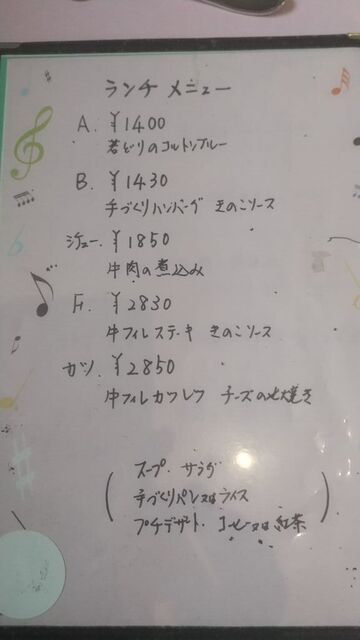 ランチ メニュー
A. ¥1400
若どりのコルドンブルー
B. ¥1430
手づくりハンバーグ きのこソース
シチュー. ¥1850
牛肉の煮込み
F. ¥2830
牛フィレステーキ きのこソース
カツ. ¥2850
牛フィレカツレツ チーズの焼き
(スープ. サラダ
手づくりパン又はライス
プチデザート. コーヒー又は紅茶)